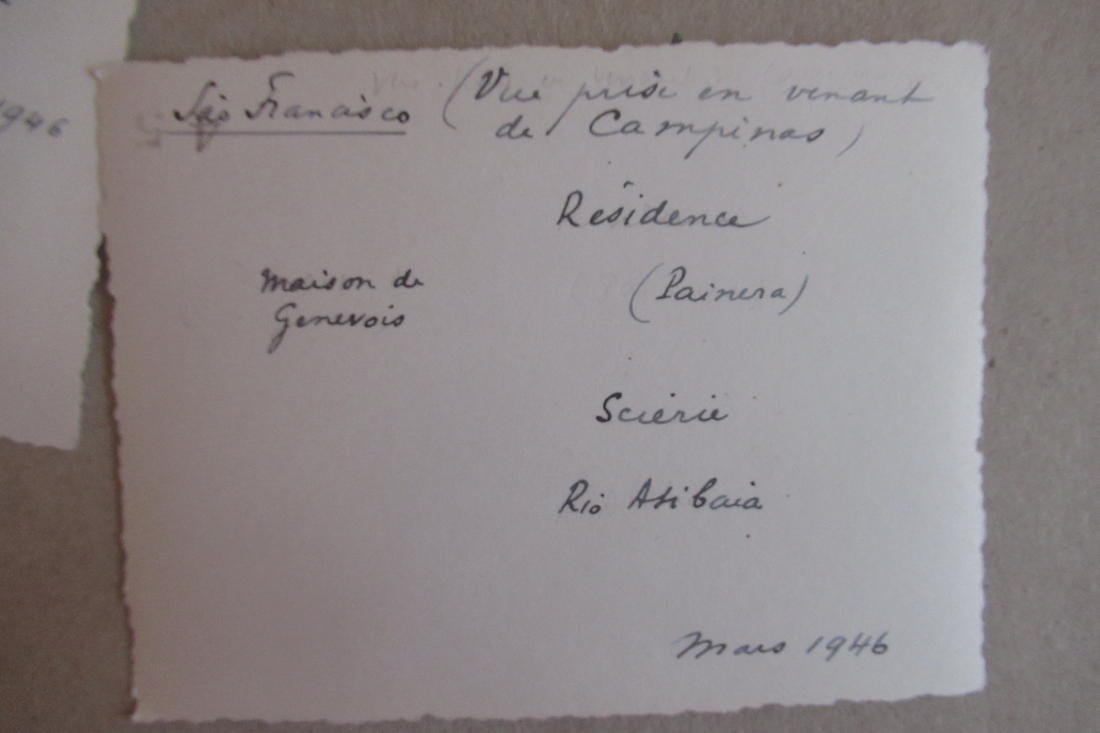 São Francisco (Vue prise en venant
de Campinas)
Résidence
Maison de
Genevois
(Painera)
Scierie
Rio Atibaia
Mars 1946
1946